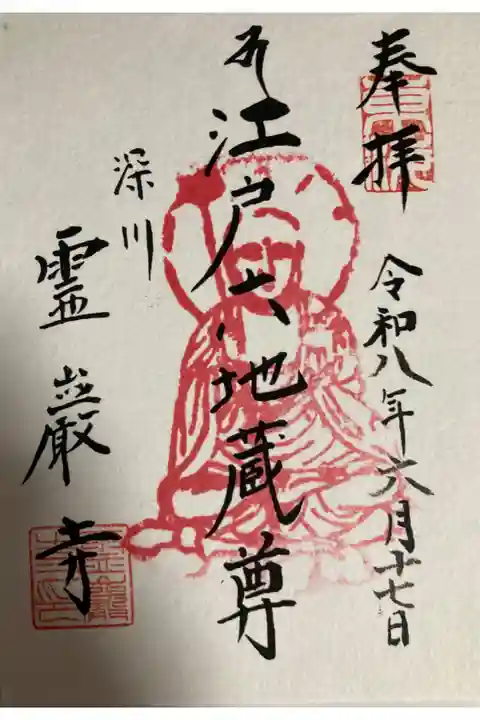 奉拝
令和八年六月十七日
江戸六地蔵尊
深川
霊巌寺